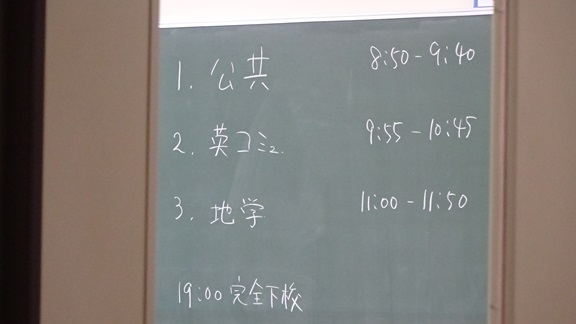 1. 公共 8:50-9:40
2. 英コミュ. 9:55-10:45
3. 地学 11:00-11:50
19:00 完全下校